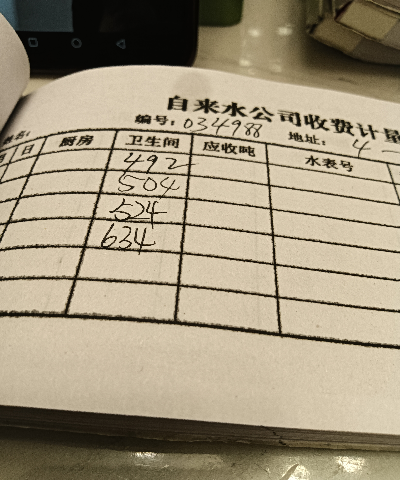 自来水公司收费计量
编号：034988 地址：4
姓名：
月 日 厨房 卫生间 应收吨 水表号
492
504
524
634